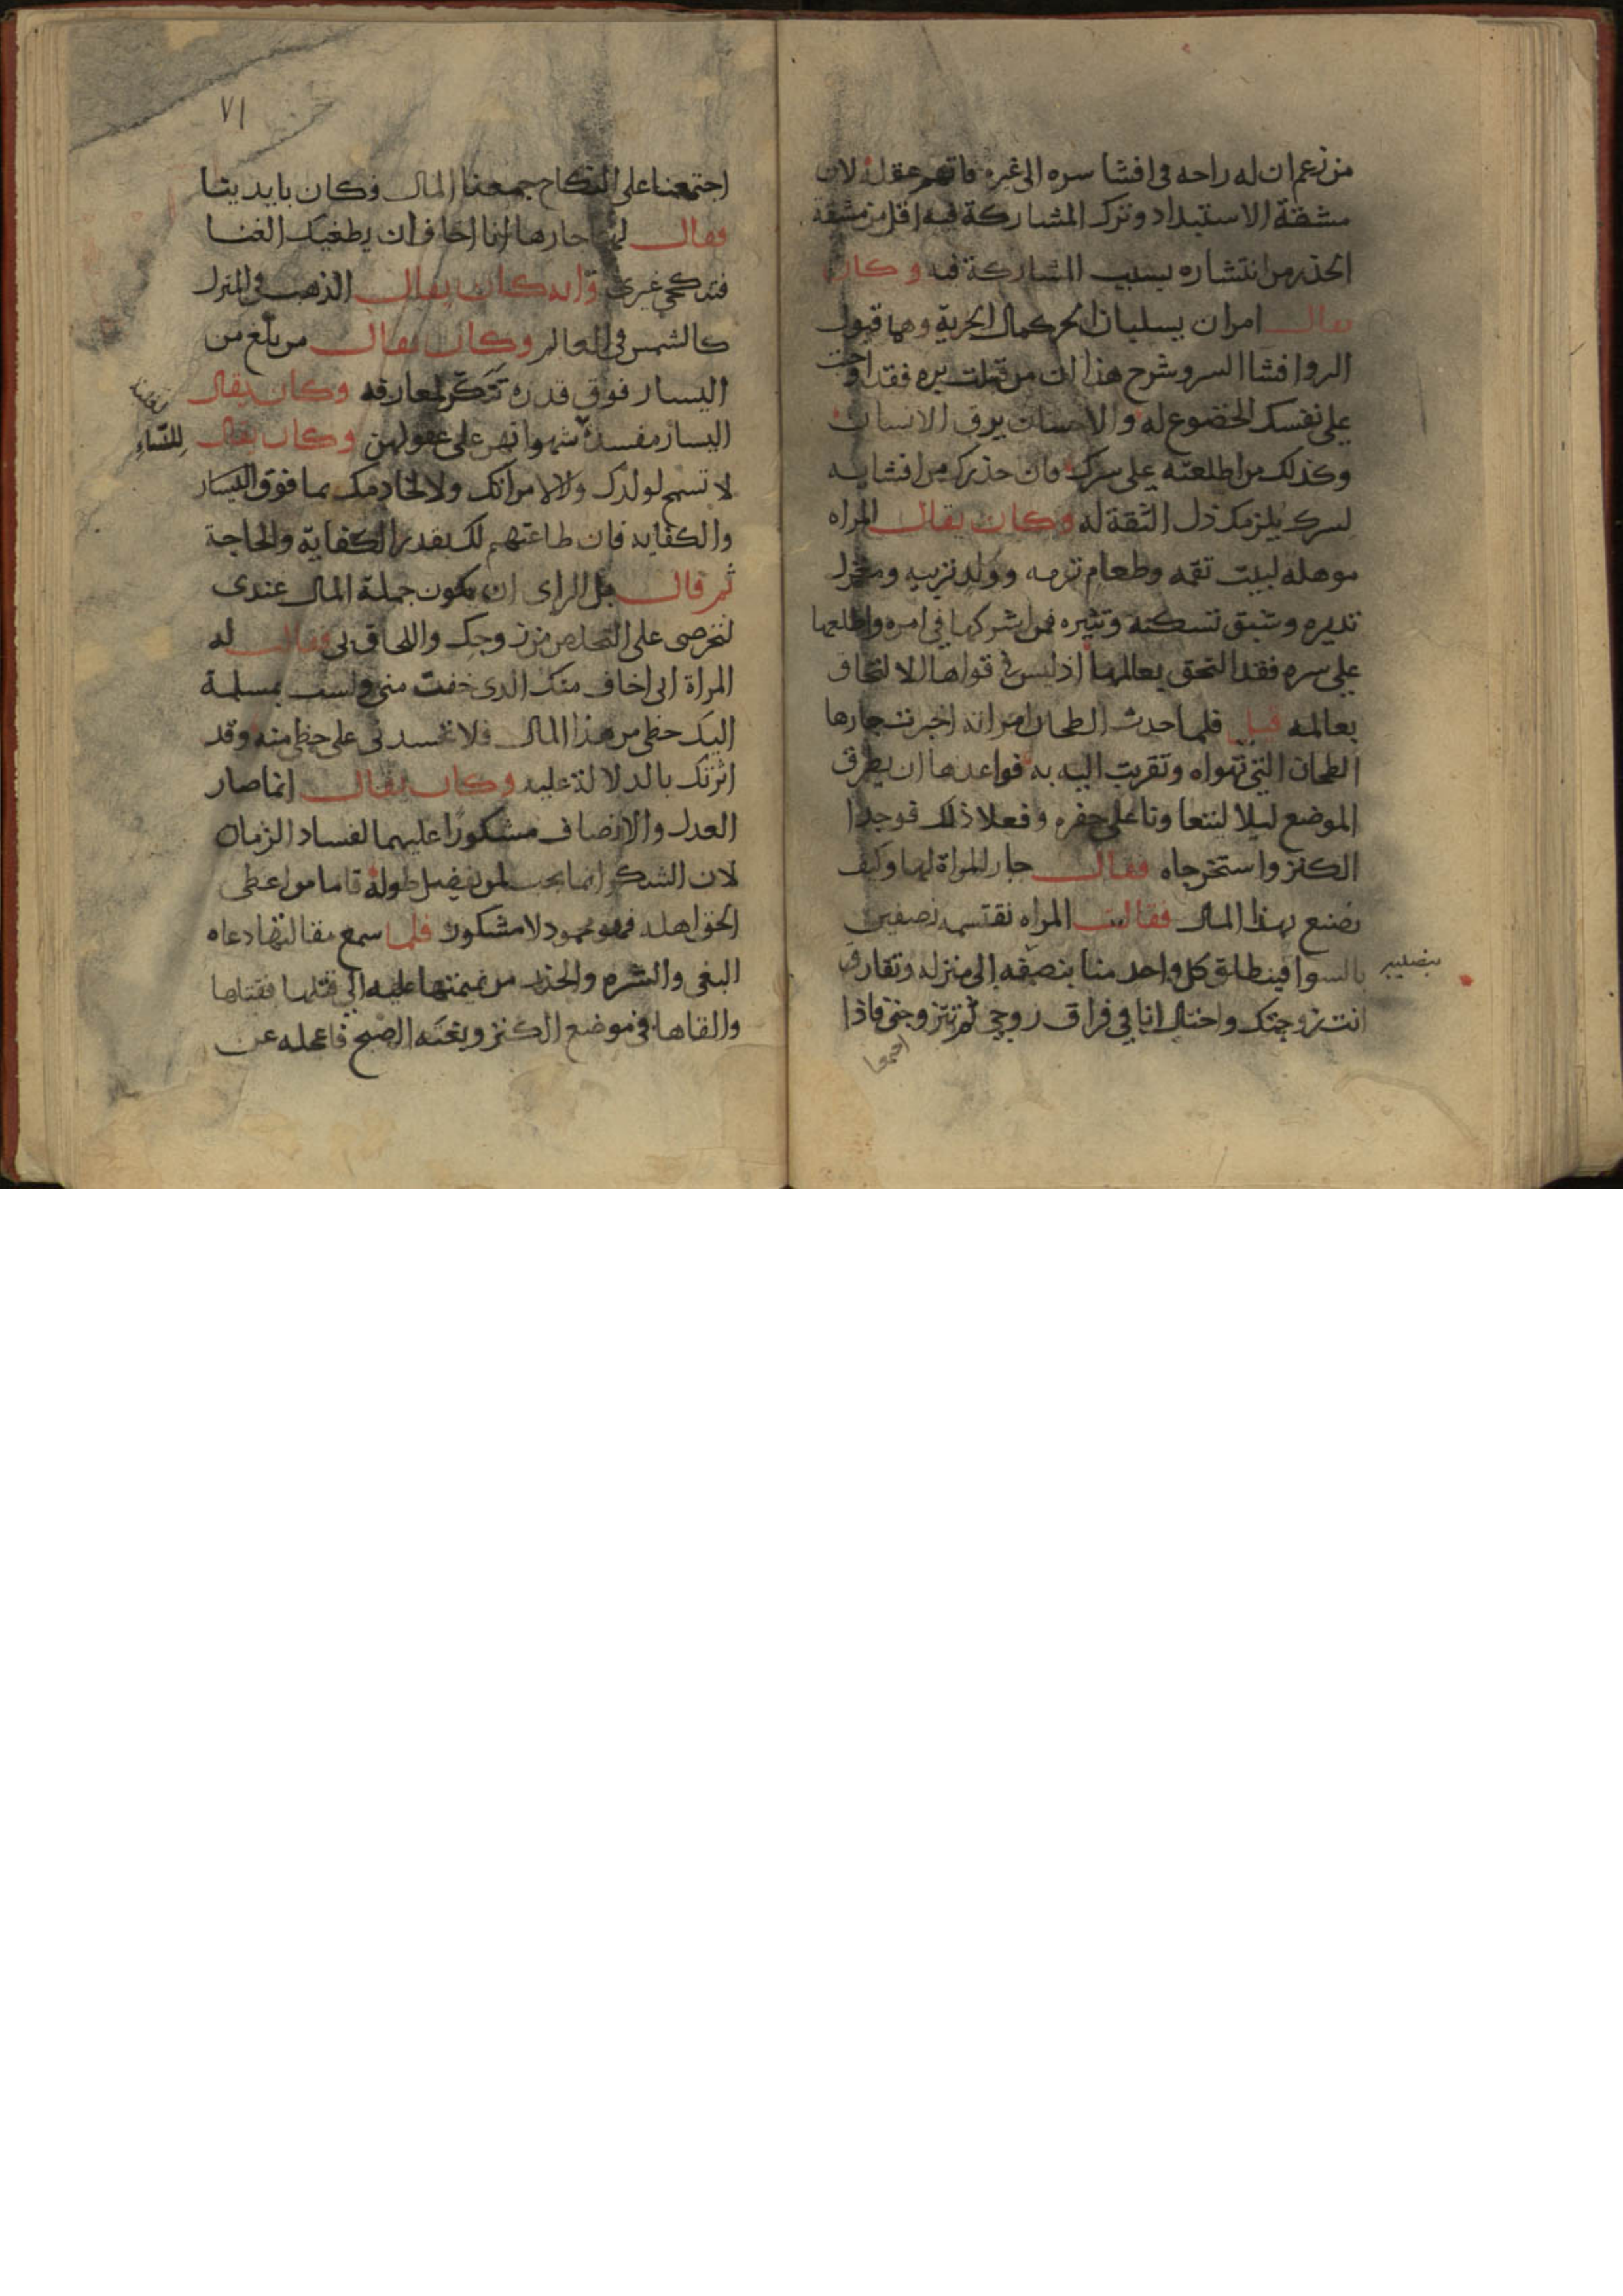 من زعم ان له راحه في افشا سره الى غيره فاتهم عقله لان
مشقة الاستبداد وترك المشاركة فيه اقل من مشقة
الحذر من انتشاره بسبب المشاركة فيه وكان
يقال امران يسلبان الحر كمال الحرية وهما قبول
البر وافشا السر وشرح هذا ان من قبلت بره فقد اوجبت
على نفسك الخضوع له والاحسان يرق الانسان
وكذلك من اطلعته على سرك فان حذرك من افشايه
لسرك يلزمك ذل التقة له وكان يقال المراه
موهلة لبيت تقمه وطعام ترمه وولد تربيه ومغزل
تديره وشبق تسكنه وتثيره فمن اشركها في امره واطلعها
على سره فقد التحق بعالمها اذ ليس في قواها الالتحاق
بعالمه قيل فلما حدث الطحان امراته اخبرت جارها
الطحان التي تهواه وتقربت اليه به فواعدها ان يطرق
الموضع ليلا ليتعاونا على حفره وفعلا ذلك فوجدا
الكنز واستخرجاه فقال جار المراة لها وكيف
نصنع بهذا المال فقالت المراه نقتسمه نصفين
بالسوا فينطلق كل واحد منا بنصفه الى منزله وتفارق
انت زوجتك واحتال انا في فراق زوجي ثم تتزوجني فاذا
اجتمعنا
٧١
اجتمعنا على النكاح جمعنا المال وكان بايدينا
فقال لها جارها انا اخاف ان يطغيك الغنا
فتنكحي غيري فانه كان يقال الذهب في المنزل
كالشمس في العالم وكان يقال من بلغ من
اليسار فوق قدره تنكر لمعارفه وكان يقال
اليسار مفسدة للنساء شهواتهن على عقولهن وكان يقال
لا تسمح لولدك ولا لامراتك ولا لخادمك بما فوق اليسار
والكفايه فان طاعتهم لك بقدر الكفاية والحاجة
ثم قال بل الراى ان يكون جملة المال عندى
لتحرصى على التخلص من زوجك واللحاق بي فقالت له
المراة انى اخاف منك الذى خفت منى ولست بمسلمة
اليك حظى من هذا المال فلا تحسدنى على حظى منه وقد
اثرتك بالدلالة عليه وكان يقال انما صار
العدل والانصاف مشكورا عليهما لفساد الزمان
لان الشكر انما يجب لمن يفضل طوله فاما من اعطى
الحق اهله فهو محمود لا مشكور فلما سمع مقالتها دعاه
البغى والشره والحذر من نميمتها عليه الى قتلها فقتلها
والقاها في موضع الكنز وبغته الصبح فاعجله عن